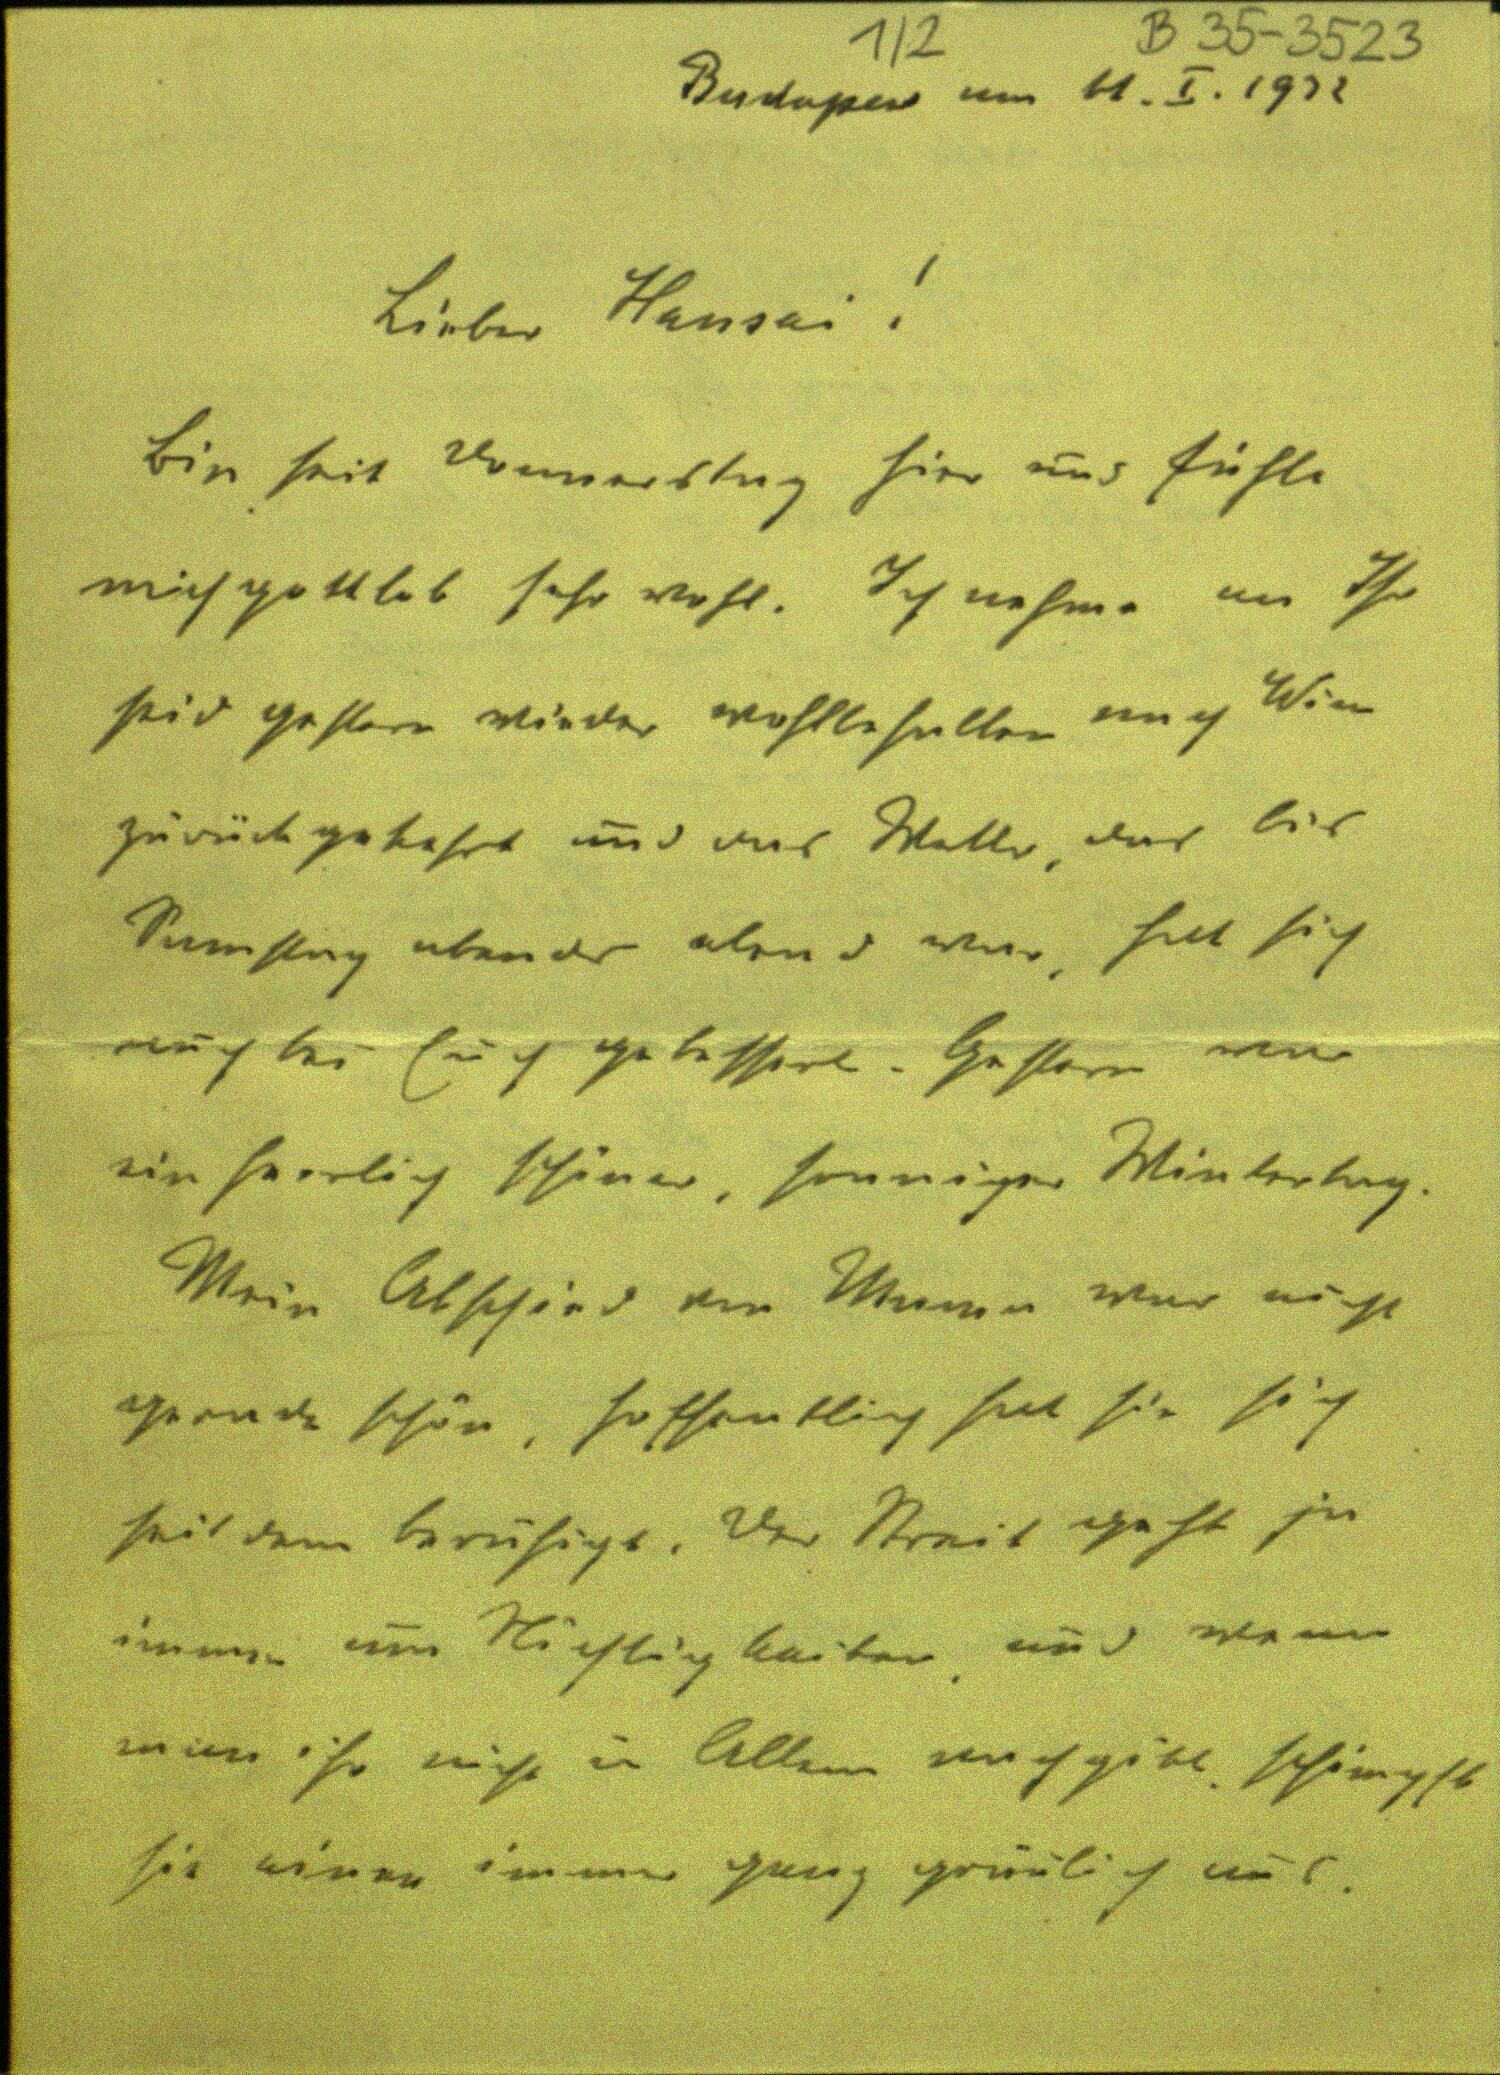 1/2 B 35-3523
Budapest am 11. I. 1932
Lieber Hansai!
Bin seit Donnerstag hier und fühle
mich gottlob sehr wohl. Ich nehme an Ihr
seid gestern wieder wohlbehalten nach Wien
zurückgekehrt und das Wetter, das bis
Samstag abends elend war, hat sich
auch bei Euch gebessert. Gestern war
ein herrlich schöner, sonniger Wintertag.
Mein Abschied von Mama war nicht
gerade schön, hoffentlich hat sie sich
seitdem beruhigt. Der Streit geht ja
immer um Nichtigkeiten, und wenn
man ihr nicht in Allem nachgibt, schimpft
sie einen immer ganz gräulich aus.